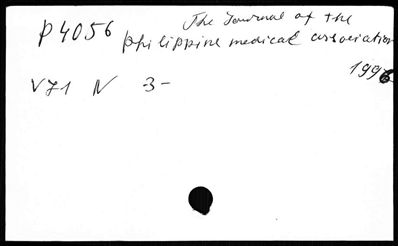 P4056 The Journal of the
philippine medical association
1996
V71 N -3-